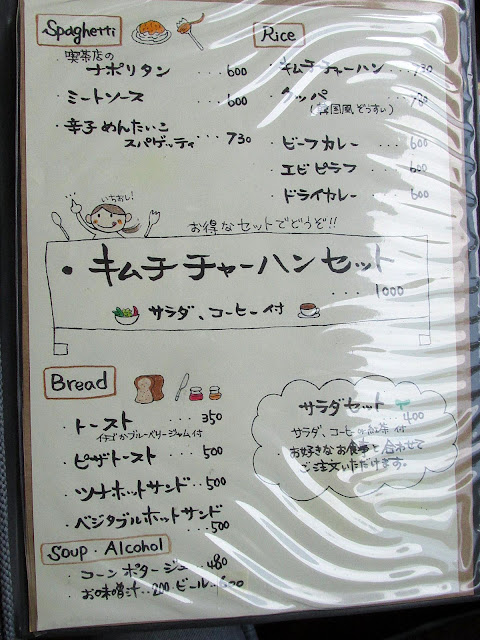 Spaghetti
喫茶店の
ナポリタン ... 600
・ミートソース 600
・辛子めんたいこ
スパゲッティ ... 730
Rice
・キムチチャーハン ... 730
・クッパ 780
(韓国風ぞうすい)
・ビーフカレー 600
・エビピラフ 600
・ドライカレー 600
いちおし!
お得なセットでどうぞ!!
・キムチチャーハンセット
.... 1000
サラダ、コーヒー付
Bread
・トースト .... 350
イチゴかブルーベリージャム付
・ピザトースト 500
・ツナホットサンド ... 500
・ベジタブルホットサンド
... 500
サラダセット
... 400
サラダ、コーヒーor紅茶 付
お好きなお食事と合わせて
ご注文いただけます。
Soup・Alcohol
・コーンポタージュ ... 480
・お味噌汁 ... 200 ビール